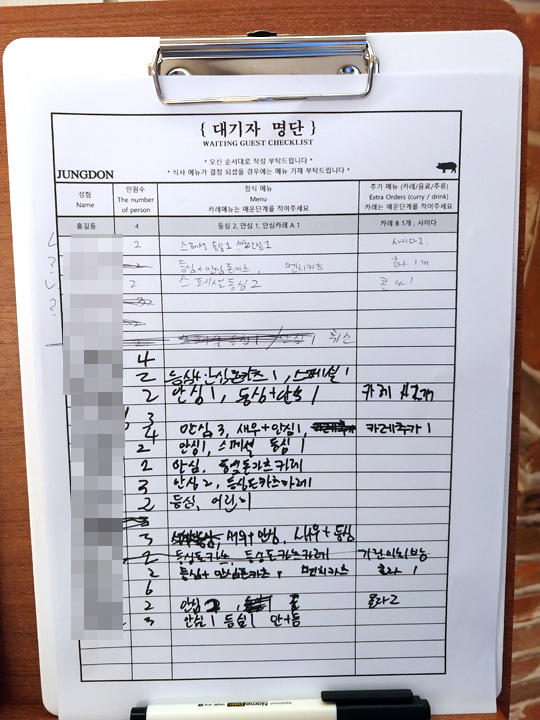 { 대기자 명단 }
WAITING GUEST CHECKLIST
* 오신 순서대로 작성 부탁드립니다 *
* 식사 메뉴가 결정 되셨을 경우에는 메뉴 기재 부탁드립니다 *
JUNGDON
성함 Name
인원수 The number of person
정식 메뉴 Menu 카레메뉴는 매운단계를 적어주세요
추가 메뉴 (카레/음료/주류) Extra Orders (curry / drink) 카레는 매운단계를 적어주세요
홍길동 4 등심 2, 안심 1, 안심카레 A 1 카레 B 1개, 사이다
2 스페셜 등심1 안심1 사이다2
등심+안심돈카츠, 멘치카츠 콜라 1개
2 스페셜등심2 콜라1
2
안심 1 취소
4
2 등심+안심돈카츠 1, 스페셜 1
2 안심 1, 등심+안심 1 카레
3
4 안심 3, 새우+안심 1, 카레추가 1
2 안심 1, 스페셜 등심 1
2 안심, 등심돈가츠카레
3 안심 2, 등심돈카츠카레
2 등심, 어린이
3 새우+안심, 새우+등심
2 등심돈카츠, 등심돈카츠카레
2 등심+안심돈카츠, 멘치카츠 콜라 1
6
2 안심 콜라2
3 안심 1 등심 1 안+등
Name pen